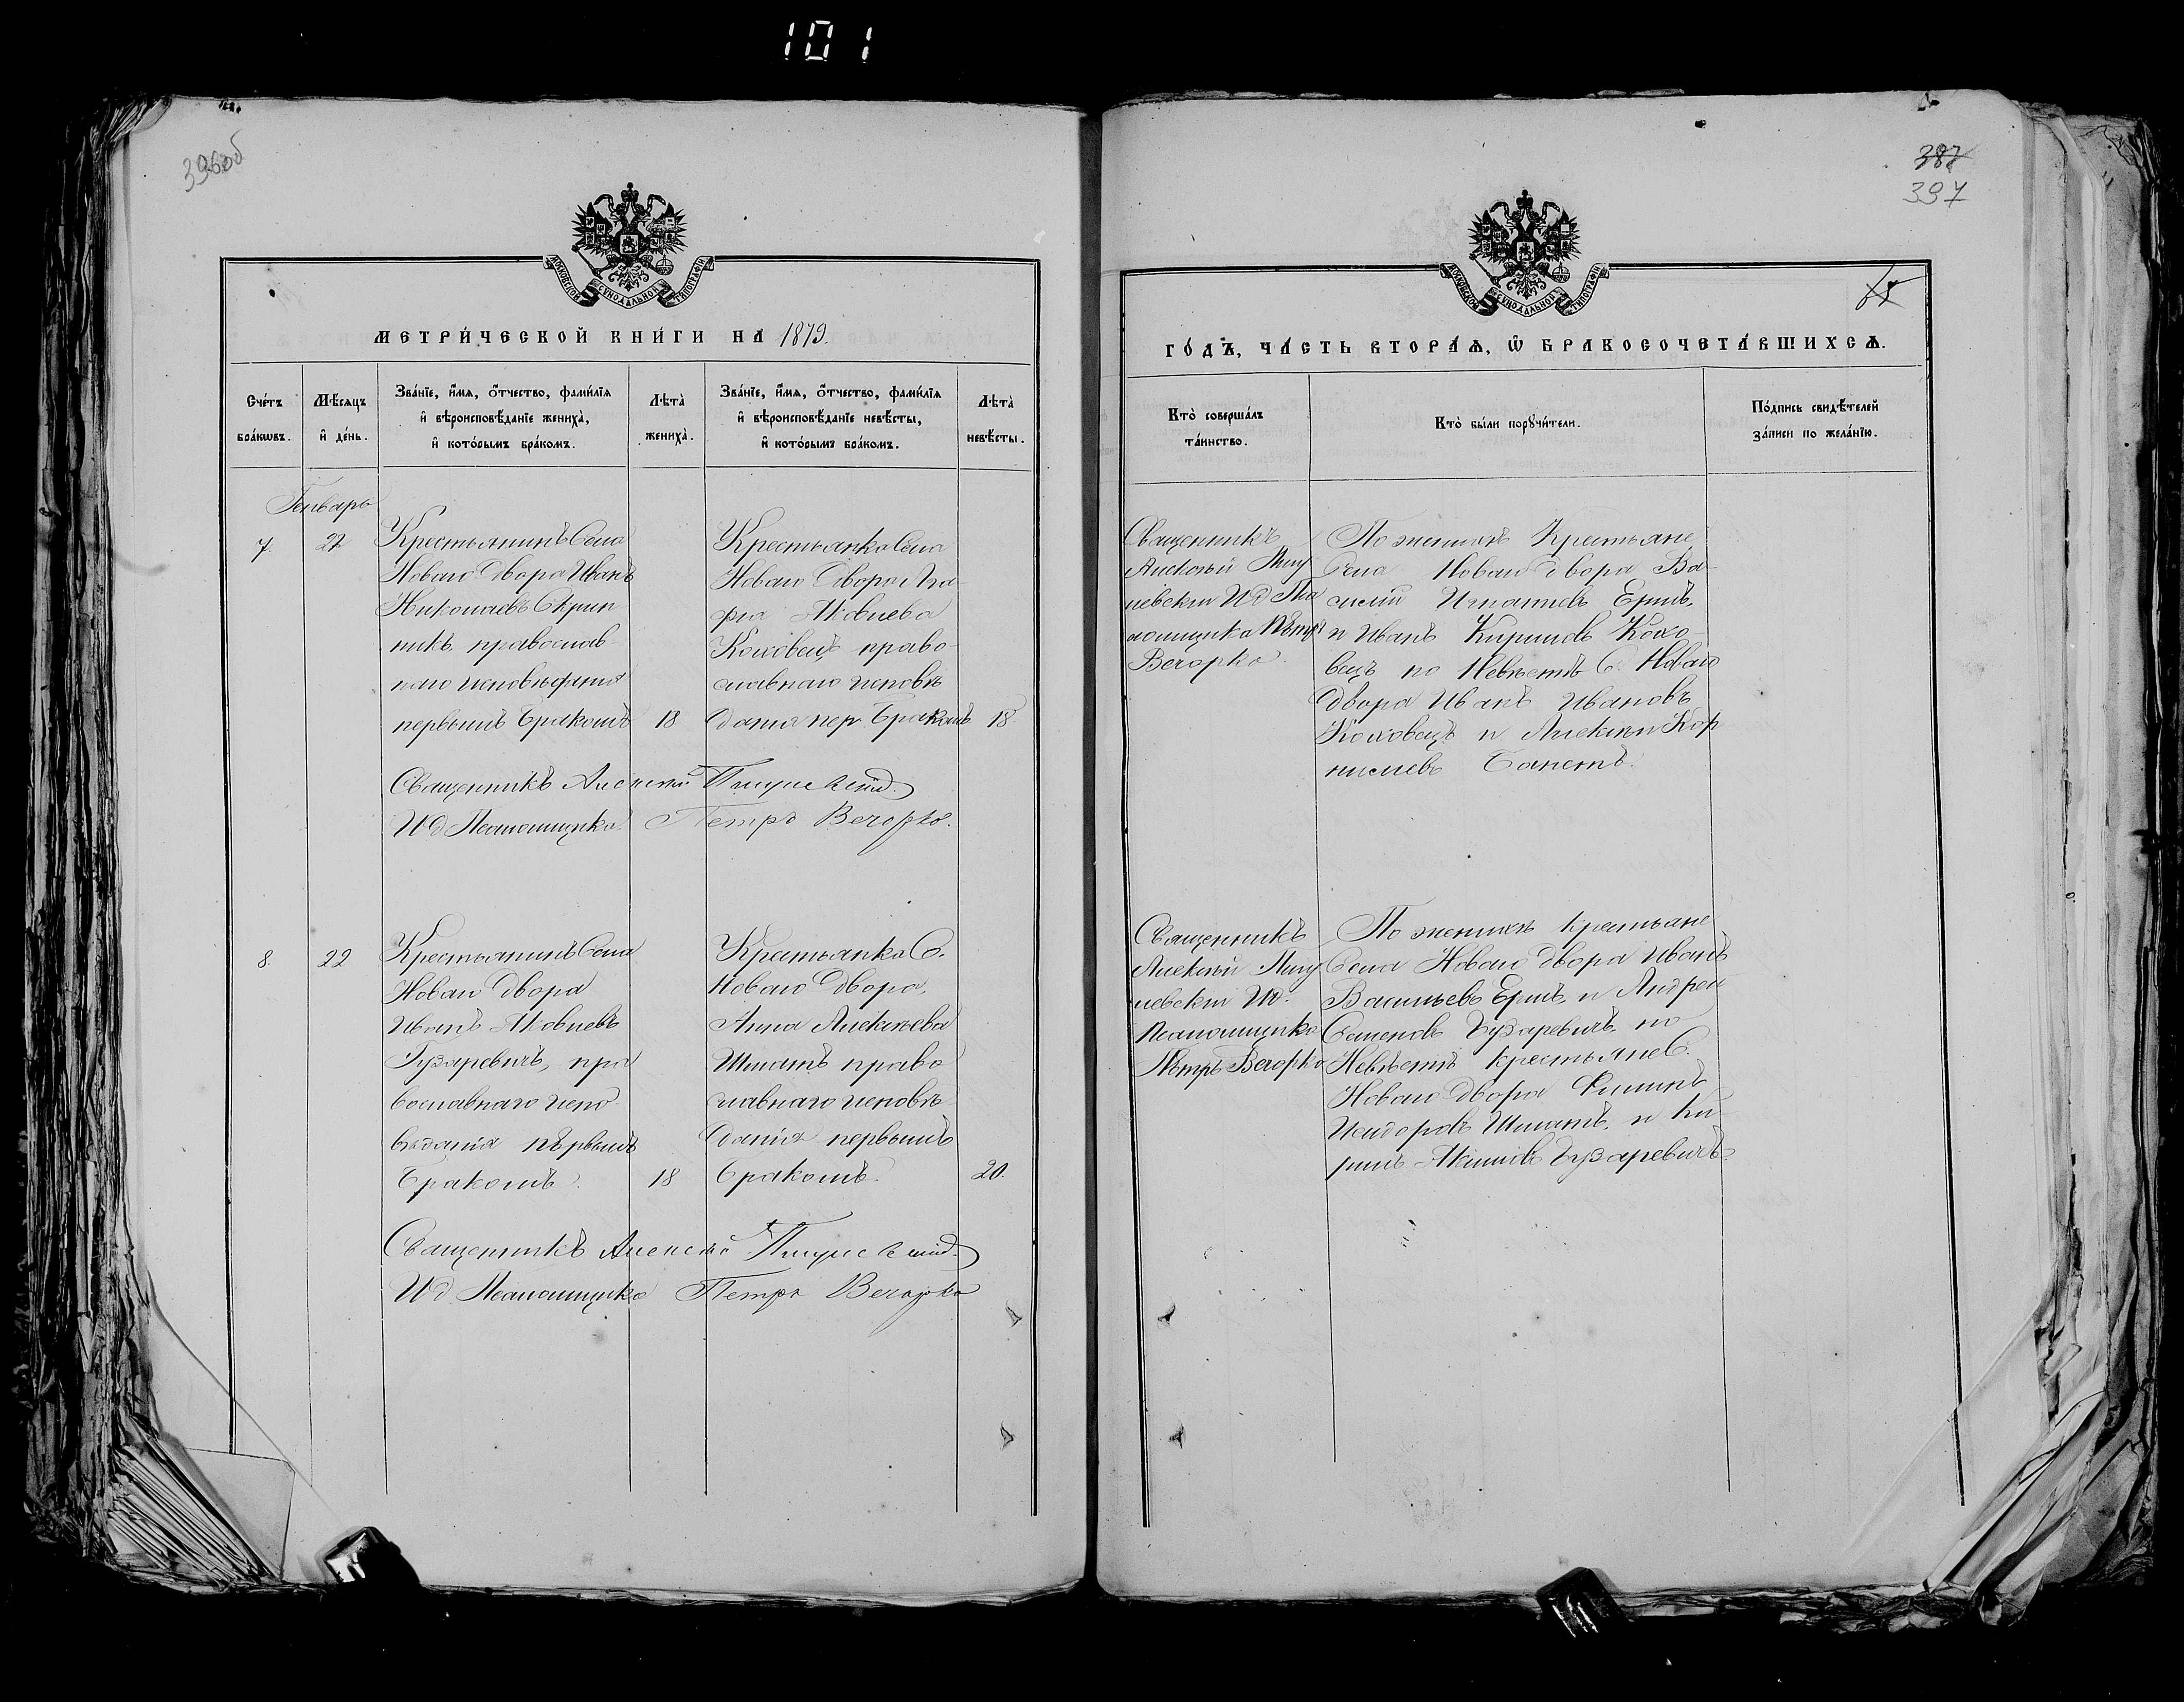 101
396об
МЕТРИ́ЧЕСКОЙ КНИ́ГИ НА 1879.
Сче́тъ бра́кωвъ.
Мѣ́сяцъ и҆ де́нь.
Зва́нїе, и҆́мѧ, ѻ҆́тчество, фами́лїѧ и҆ вѣроисповѣ́данїе жениха̀, и҆ кото́рымъ бра́комъ.
Лѣта̀ жениха̀.
Зва́нїе, и҆́мѧ, ѻ҆́тчество, фами́лїѧ и҆ вѣроисповѣ́данїе невѣ́сты, и҆ кото́рымъ бра́комъ.
Лѣта̀ невѣ́сты.
Генварь
7.
22
Крестьянинъ Села
Новаго Двора Иванъ
Николаевъ Скрип
никъ православ
наго исповѣданія
первымъ бракомъ
18
Крестьянка Села
Новаго Двора
Яковлева
Коховецъ право
славнаго исповѣ
данія пер. бракомъ
18.
Священникъ Алексѣй
ИД Псаломщика Петръ Вечорко.
8.
22
Крестьянинъ Села
Новаго Двора
Иванъ Яковлевъ
Гузаревичъ, пра
вославнаго испо
вѣданія первымъ
бракомъ.
18
Крестьянка С.
Новаго Двора,
Анна Алексѣева
Шматъ право
славнаго исповѣ
данія первымъ
бракомъ.
20.
Священникъ Алексѣй
ИД Псаломщика Петръ Вечорко
387
397
ГО́ДЪ, ЧА́СТЬ ВТОРА́Ѧ, Ѽ БРАКОСОЧЕТА́ВШИХСѦ.
Кто̀ соверша́лъ та́инство.
Кто̀ бы́ли порꙋчи́тели.
По́дпись свидѣ́телей за́писи по жела́нїю.
Священникъ
Алексѣй
ИД Пса
ломщика Петръ
Вечорко.
По женихѣ Крестьяне
Села Новаго Двора Ва
силій Игнатовъ Ершъ,
и Иванъ Кириловъ Кохо
вецъ по Невѣстѣ С. Новаго
Двора Иванъ Ивановъ
Коховецъ и Алексѣй Кор
ниліевъ
Священникъ
Алексѣй
ИД.
Псаломщика
Петръ Вечорко
По женихѣ крестьяне
Села Новаго Двора Иванъ
Васильевъ Ершъ, и Андрей
Семеновъ Гузаревичъ, по
Невѣстѣ крестьяне С.
Новаго Двора Филипъ
Исидоровъ Шматъ, и Ки
рилъ Акимовъ Гузаревичъ.